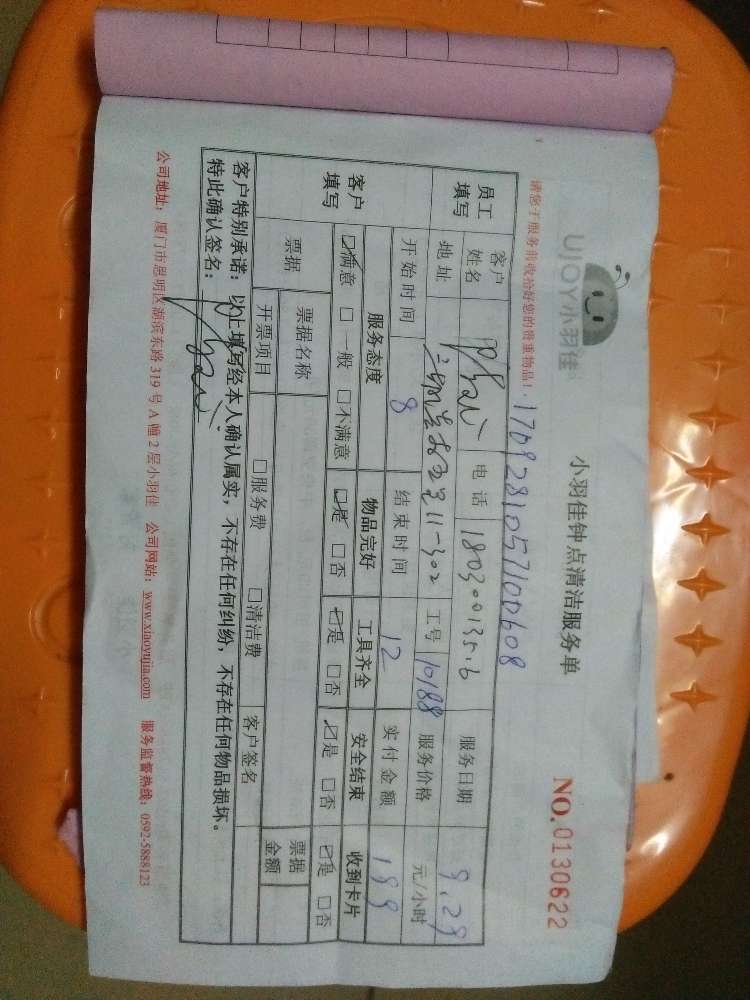 UJOY小羽佳
小羽佳钟点清洁服务单
NO.0130622
请您于服务前收拾好您的贵重物品!
1709281057100608
员工填写
客户姓名
电话 18030013516
服务日期 9.29
地址 11-302
工号 10188
服务价格 元/小时
开始时间 8
结束时间 12
实付金额 199
客户填写
服务态度 物品完好 工具齐全 安全结束 收到卡片
☑满意 □一般 □不满意 ☑是 □否 ☑是 □否 ☑是 □否 ☑是 □否
票据 票据名称 票据金额
开票项目 □服务费 □清洁费 客户签名
客户特别承诺:以上填写经本人确认属实,不存在任何纠纷,不存在任何物品损坏。
特此确认签名:
公司地址:厦门市思明区湖滨东路319号A幢2层小羽佳 公司网站:www.xiaoyujia.com 服务监督热线:0592-5888123